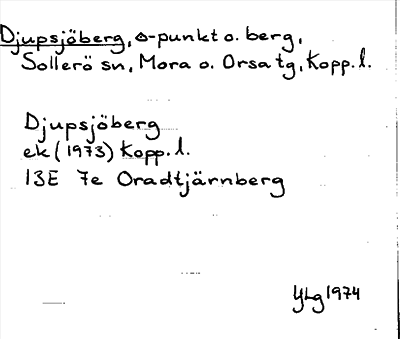 Djupsjöberg, △-punkt o. berg,
Sollerö sn, Mora o. Orsa tg, Kopp. l.
Djupsjöberg
ek (1973) Kopp. l.
13E 7e Oradtjärnberg
YLg 1974